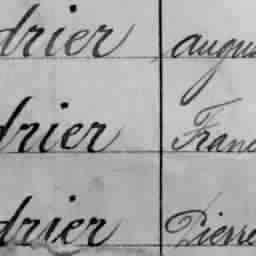 drier augu
drier Franc
drier Pierre